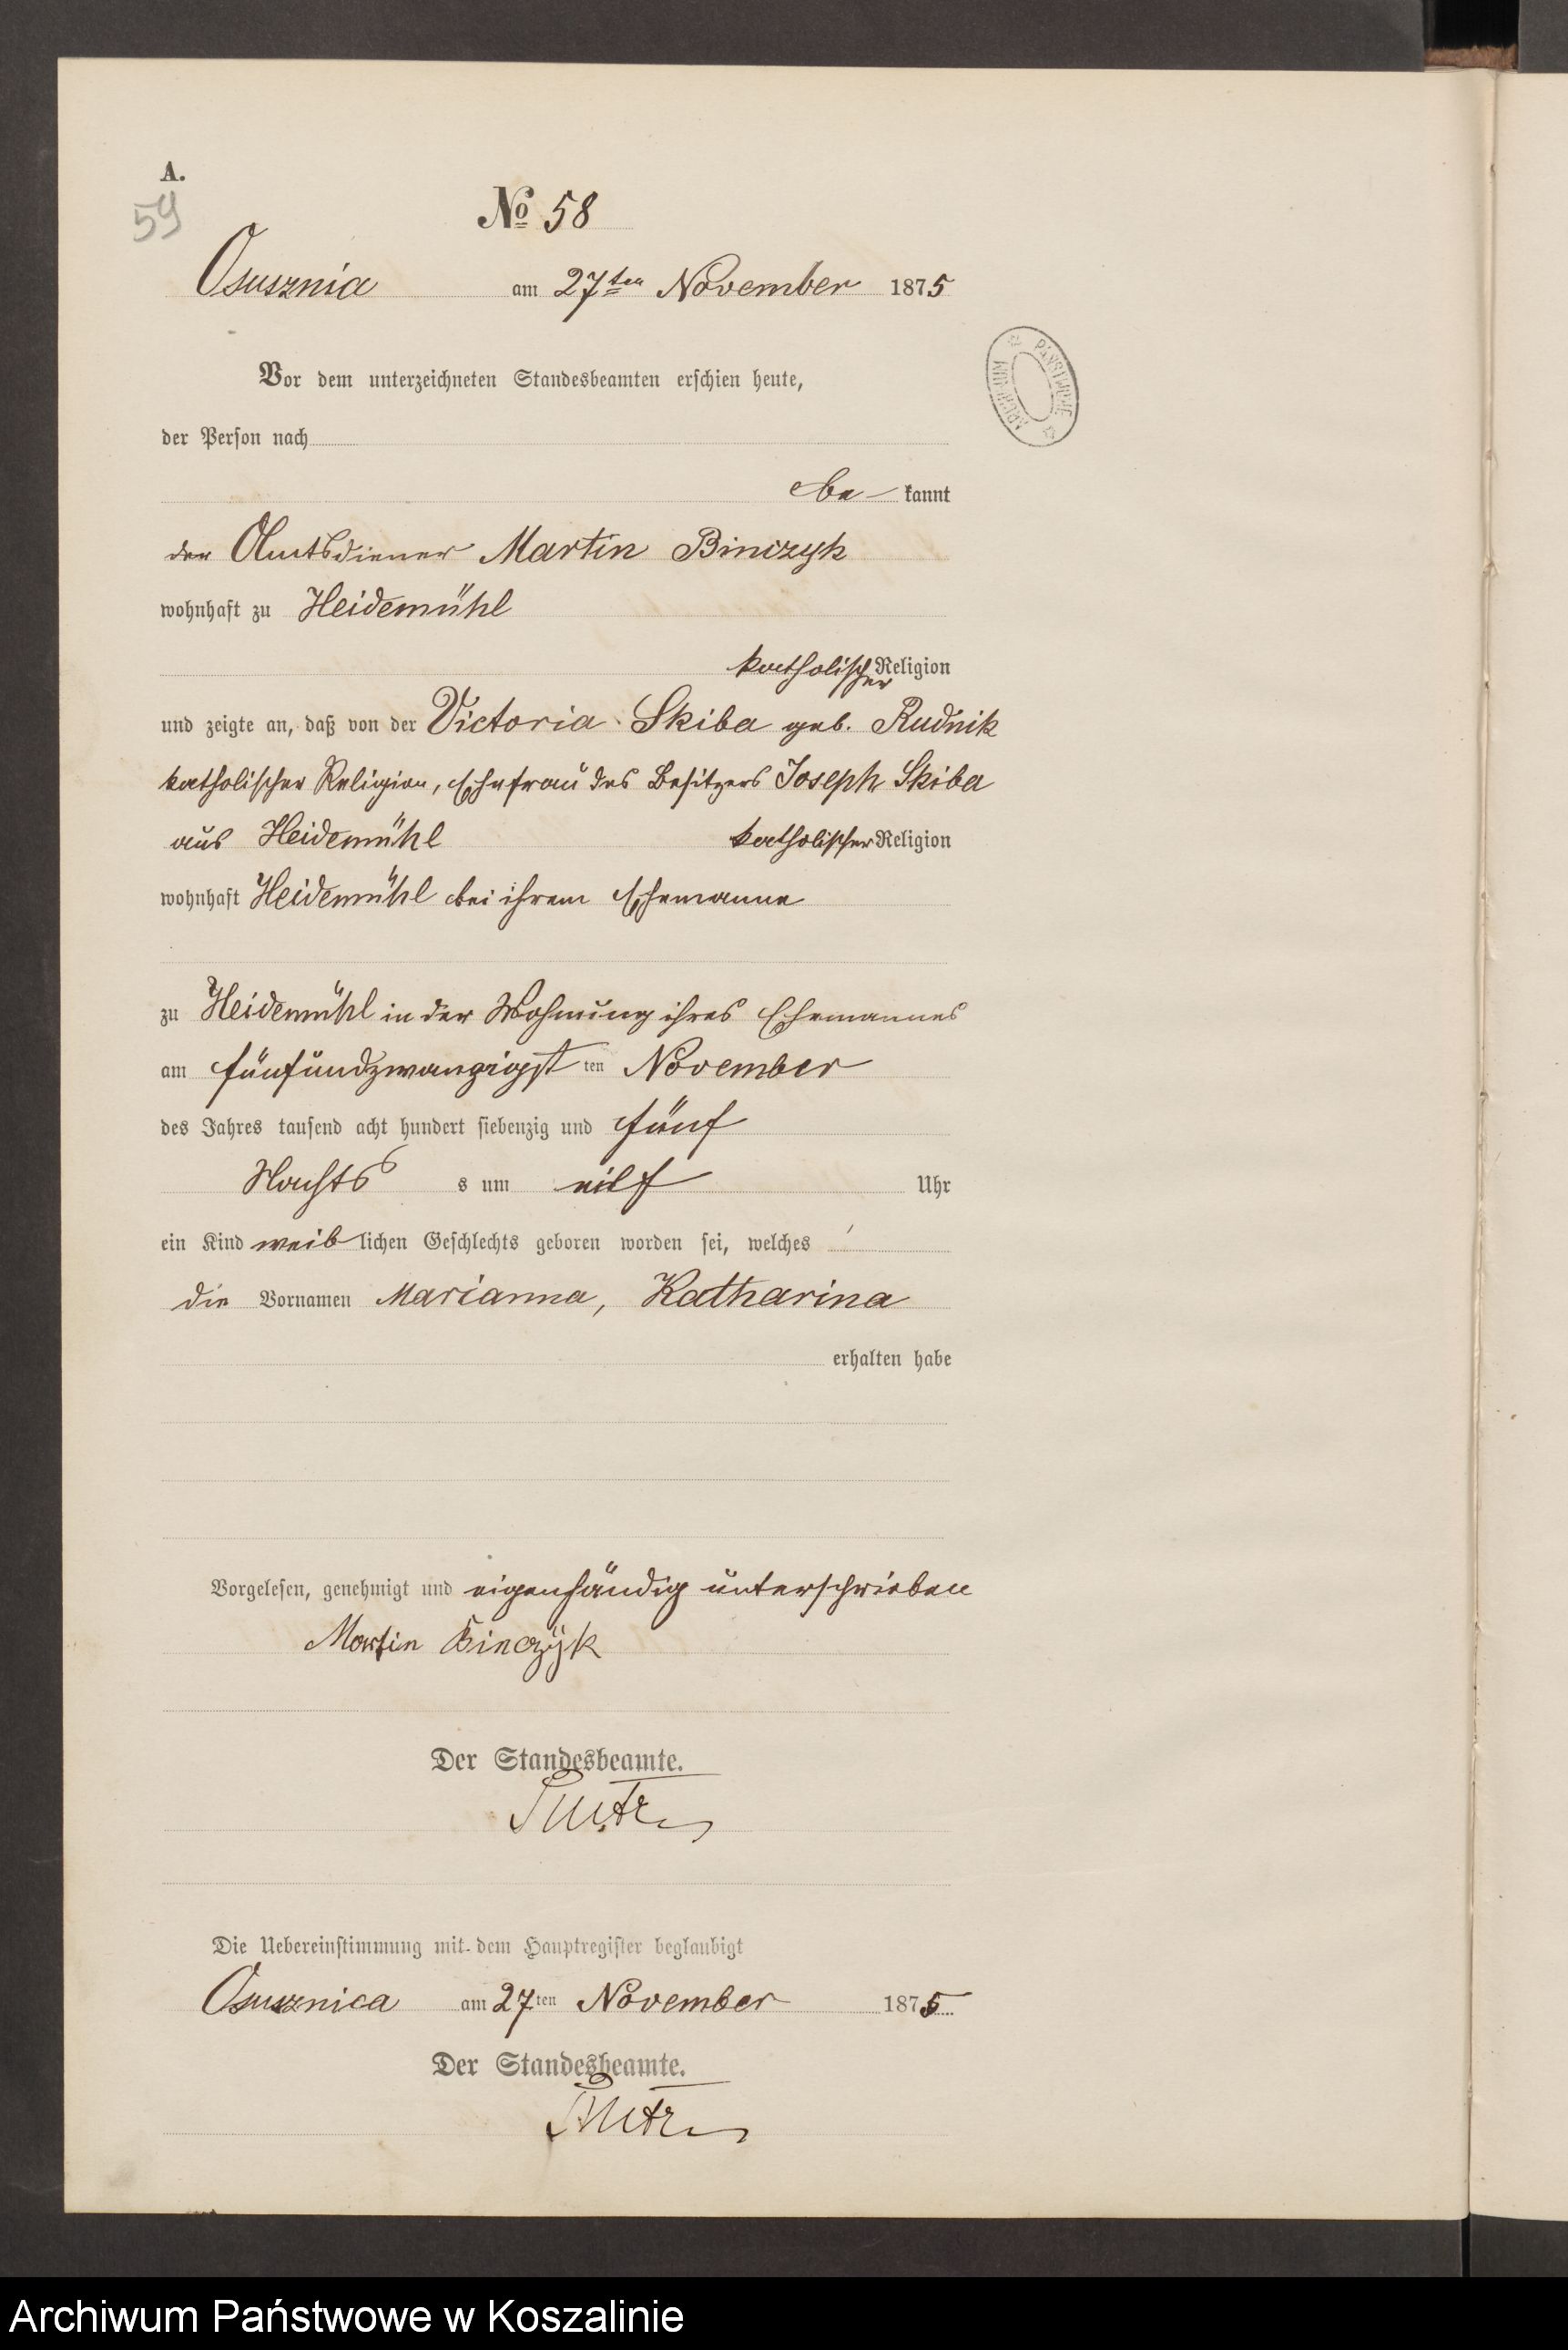 A.
59
No 58
Osusznia am 27ten November 1875
Vor dem unterzeichneten Standesbeamten erschien heute,
der Person nach
be- kannt
der Amtsdiener Martin Binczyk
wohnhaft zu Heidemühl
katholischer Religion
und zeigte an, daß von der Victoria Skiba geb. Rudnik
katholischer Religion, Ehefrau des Besitzers Joseph Skiba
aus Heidemühl katholischer Religion
wohnhaft Heidemühl bei ihrem Ehemanne
zu Heidemühl in der Wohnung ihres Ehemannes
am fünfundzwanzigst ten November
des Jahres tausend acht hundert siebenzig und fünf
Nachts s um eilf Uhr
ein Kind weiblichen Geschlechts geboren worden sei, welches
die Vornamen Marianna, Katharina
erhalten habe
Vorgelesen, genehmigt und eigenhändig unterschrieben
Martin Binczÿk
Der Standesbeamte.
Die Uebereinstimmung mit dem Hauptregister beglaubigt
Osusznica am 27ten November 1875
Der Standesbeamte.
ARCHIWUM PAŃSTWOWE
Archiwum Państwowe w Koszalinie